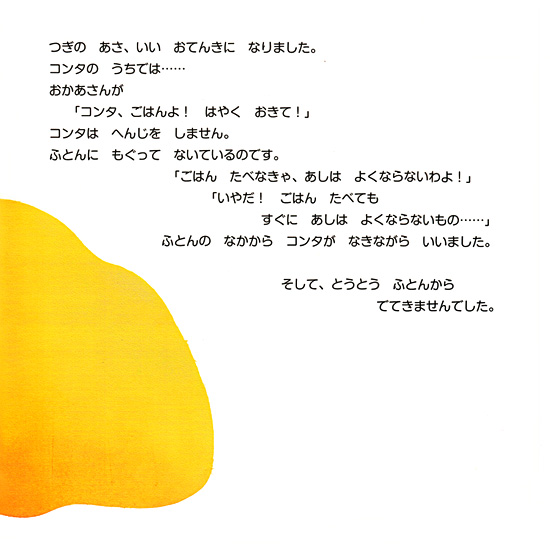 つぎの　あさ、いい　おてんきに　なりました。
コンタの　うちでは……
おかあさんが
「コンタ、ごはんよ！　はやく　おきて！」
コンタは　へんじを　しません。
ふとんに　もぐって　ないているのです。
「ごはん　たべなきゃ、あしは　よくならないわよ！」
「いやだ！　ごはん　たべても
すぐに　あしは　よくならないもの……」
ふとんの　なかから　コンタが　なきながら　いいました。
そして、とうとう　ふとんから
でてきませんでした。